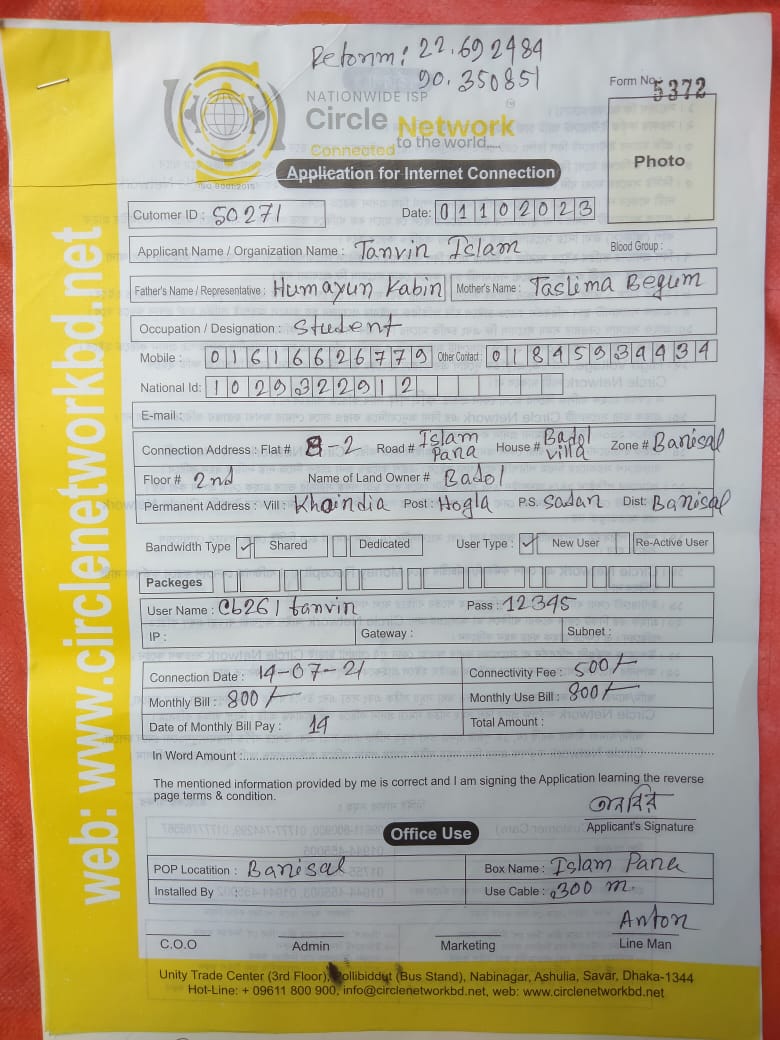 Retonm: 22.692484
90.350851
NATIONWIDE ISP
Circle Network
Connected to the world.....
ISO 9001:2015
Form No. 5372
Photo
Application for Internet Connection
Cutomer ID : 50271 Date: 01102023
Applicant Name / Organization Name : Tanvin Islam Blood Group :
Father's Name / Representative : Humayun Kabin Mother's Name : Taslima Begum
Occupation / Designation : Student
Mobile : 01616626779 Other Contact : 01845934434
National Id: 1029322912
E-mail :
Connection Address : Flat # B-2 Road # Islam Pana House # Badol villa Zone # Banisal
Floor # 2nd Name of Land Owner # Badol
Permanent Address : Vill : Khaindia Post : Hogla P.S. Sadan Dist: Banisal
Bandwidth Type ✓ Shared Dedicated User Type : ✓ New User Re-Active User
Packeges
User Name : Cb261 tanvin Pass : 12345
IP : Gateway : Subnet :
Connection Date : 14-07-21 Connectivity Fee : 500/-
Monthly Bill : 800/- Monthly Use Bill : 800/-
Date of Monthly Bill Pay : 14 Total Amount :
In Word Amount :
The mentioned information provided by me is correct and I am signing the Application learning the reverse
page terms & condition.
তানবির
Applicant's Signature
Office Use
POP Locatition : Banisal Box Name : Islam Pana
Installed By : Use Cable : 300 m.
Anton
C.O.O Admin Marketing Line Man
Unity Trade Center (3rd Floor), Pollibiddut (Bus Stand), Nabinagar, Ashulia, Savar, Dhaka-1344
Hot-Line: + 09611 800 900, info@circlenetworkbd.net, web: www.circlenetworkbd.net
web: www.circlenetworkbd.net